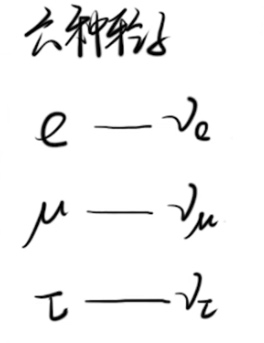 六种轻子
e — νe
μ — νμ
τ — ντ